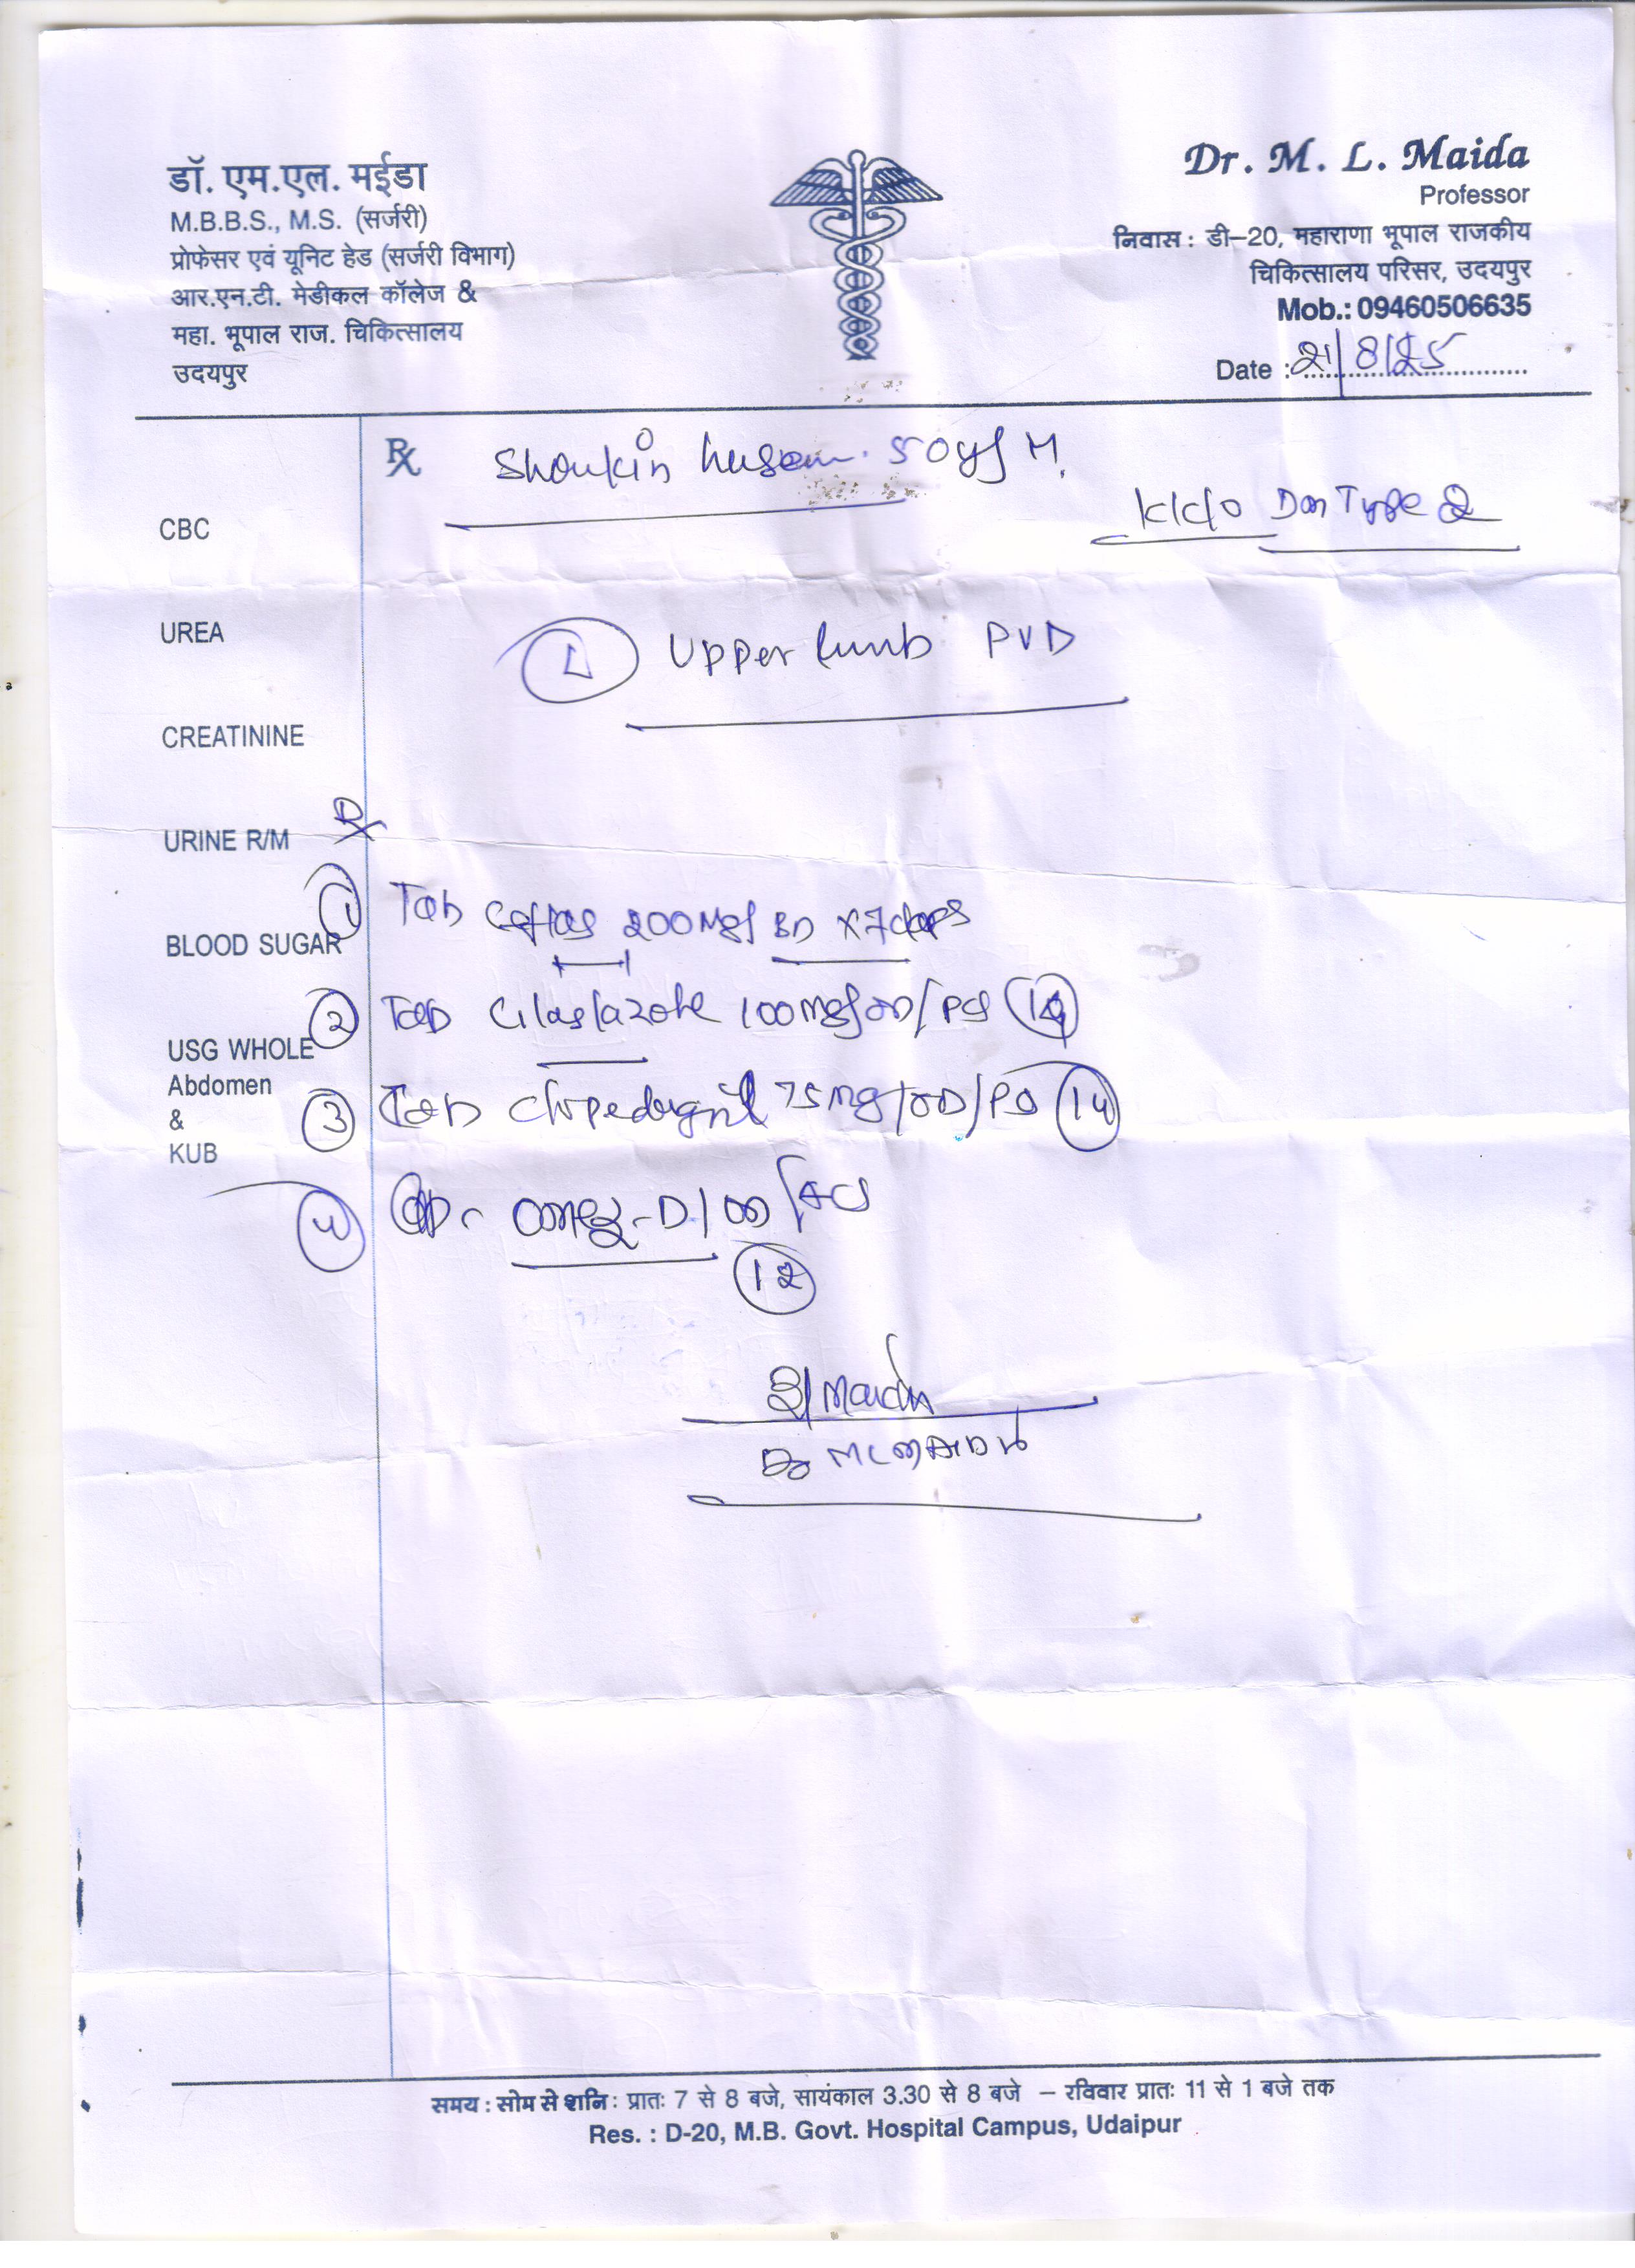 डॉ. एम.एल. मईडा
M.B.B.S., M.S. (सर्जरी)
प्रोफेसर एवं यूनिट हेड (सर्जरी विभाग)
आर.एन.टी. मेडीकल कॉलेज &
महा. भूपाल राज. चिकित्सालय
उदयपुर
Dr. M. L. Maida
Professor
निवास : डी–20, महाराणा भूपाल राजकीय
चिकित्सालय परिसर, उदयपुर
Mob.: 09460506635
Date : 21/8/25
Rx Shoukin husen. 50ys M.
K/C/O Dm Type 2
CBC
UREA
L Upper limb PVD
CREATININE
URINE R/M
Rx
1 Tab 200mg BD x 7days
BLOOD SUGAR
2 Tab 100mg OD/PC 14
USG WHOLE
Abdomen
&
KUB
3 Tab 75mg/OD/PO 14
4 -D/OD/AC
12
Dr ML MAIDA
समय : सोम से शनि : प्रातः 7 से 8 बजे, सायंकाल 3.30 से 8 बजे – रविवार प्रातः 11 से 1 बजे तक
Res. : D-20, M.B. Govt. Hospital Campus, Udaipur